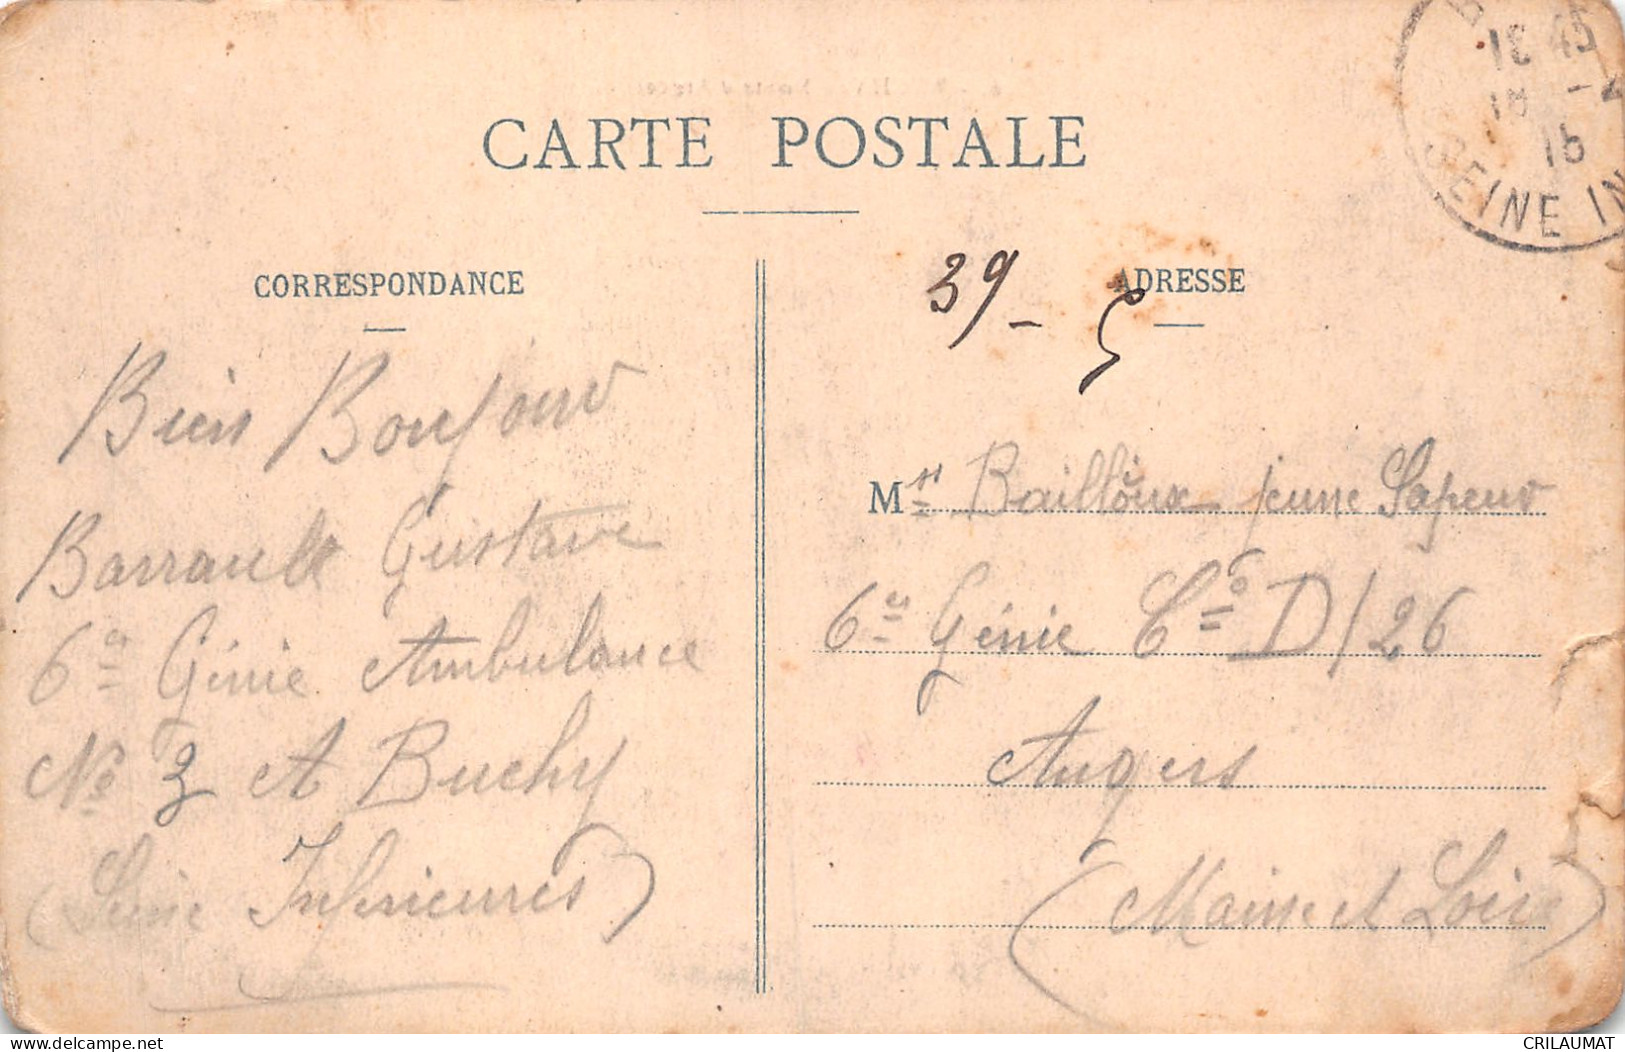 CARTE POSTALE
18 45
18 -2
15
SEINE IN
CORRESPONDANCE
Bien Bonjour
Barrault Gustave
6e Génie Ambulance
No 3 A Buchy
(Seine Inférieures)
39 - 5
ADRESSE
Mr Bailloux jeune Sapeur
6e Génie Cie D/26
Angers
(Maine et Loire)
delcampe.net
CRILAUMAT